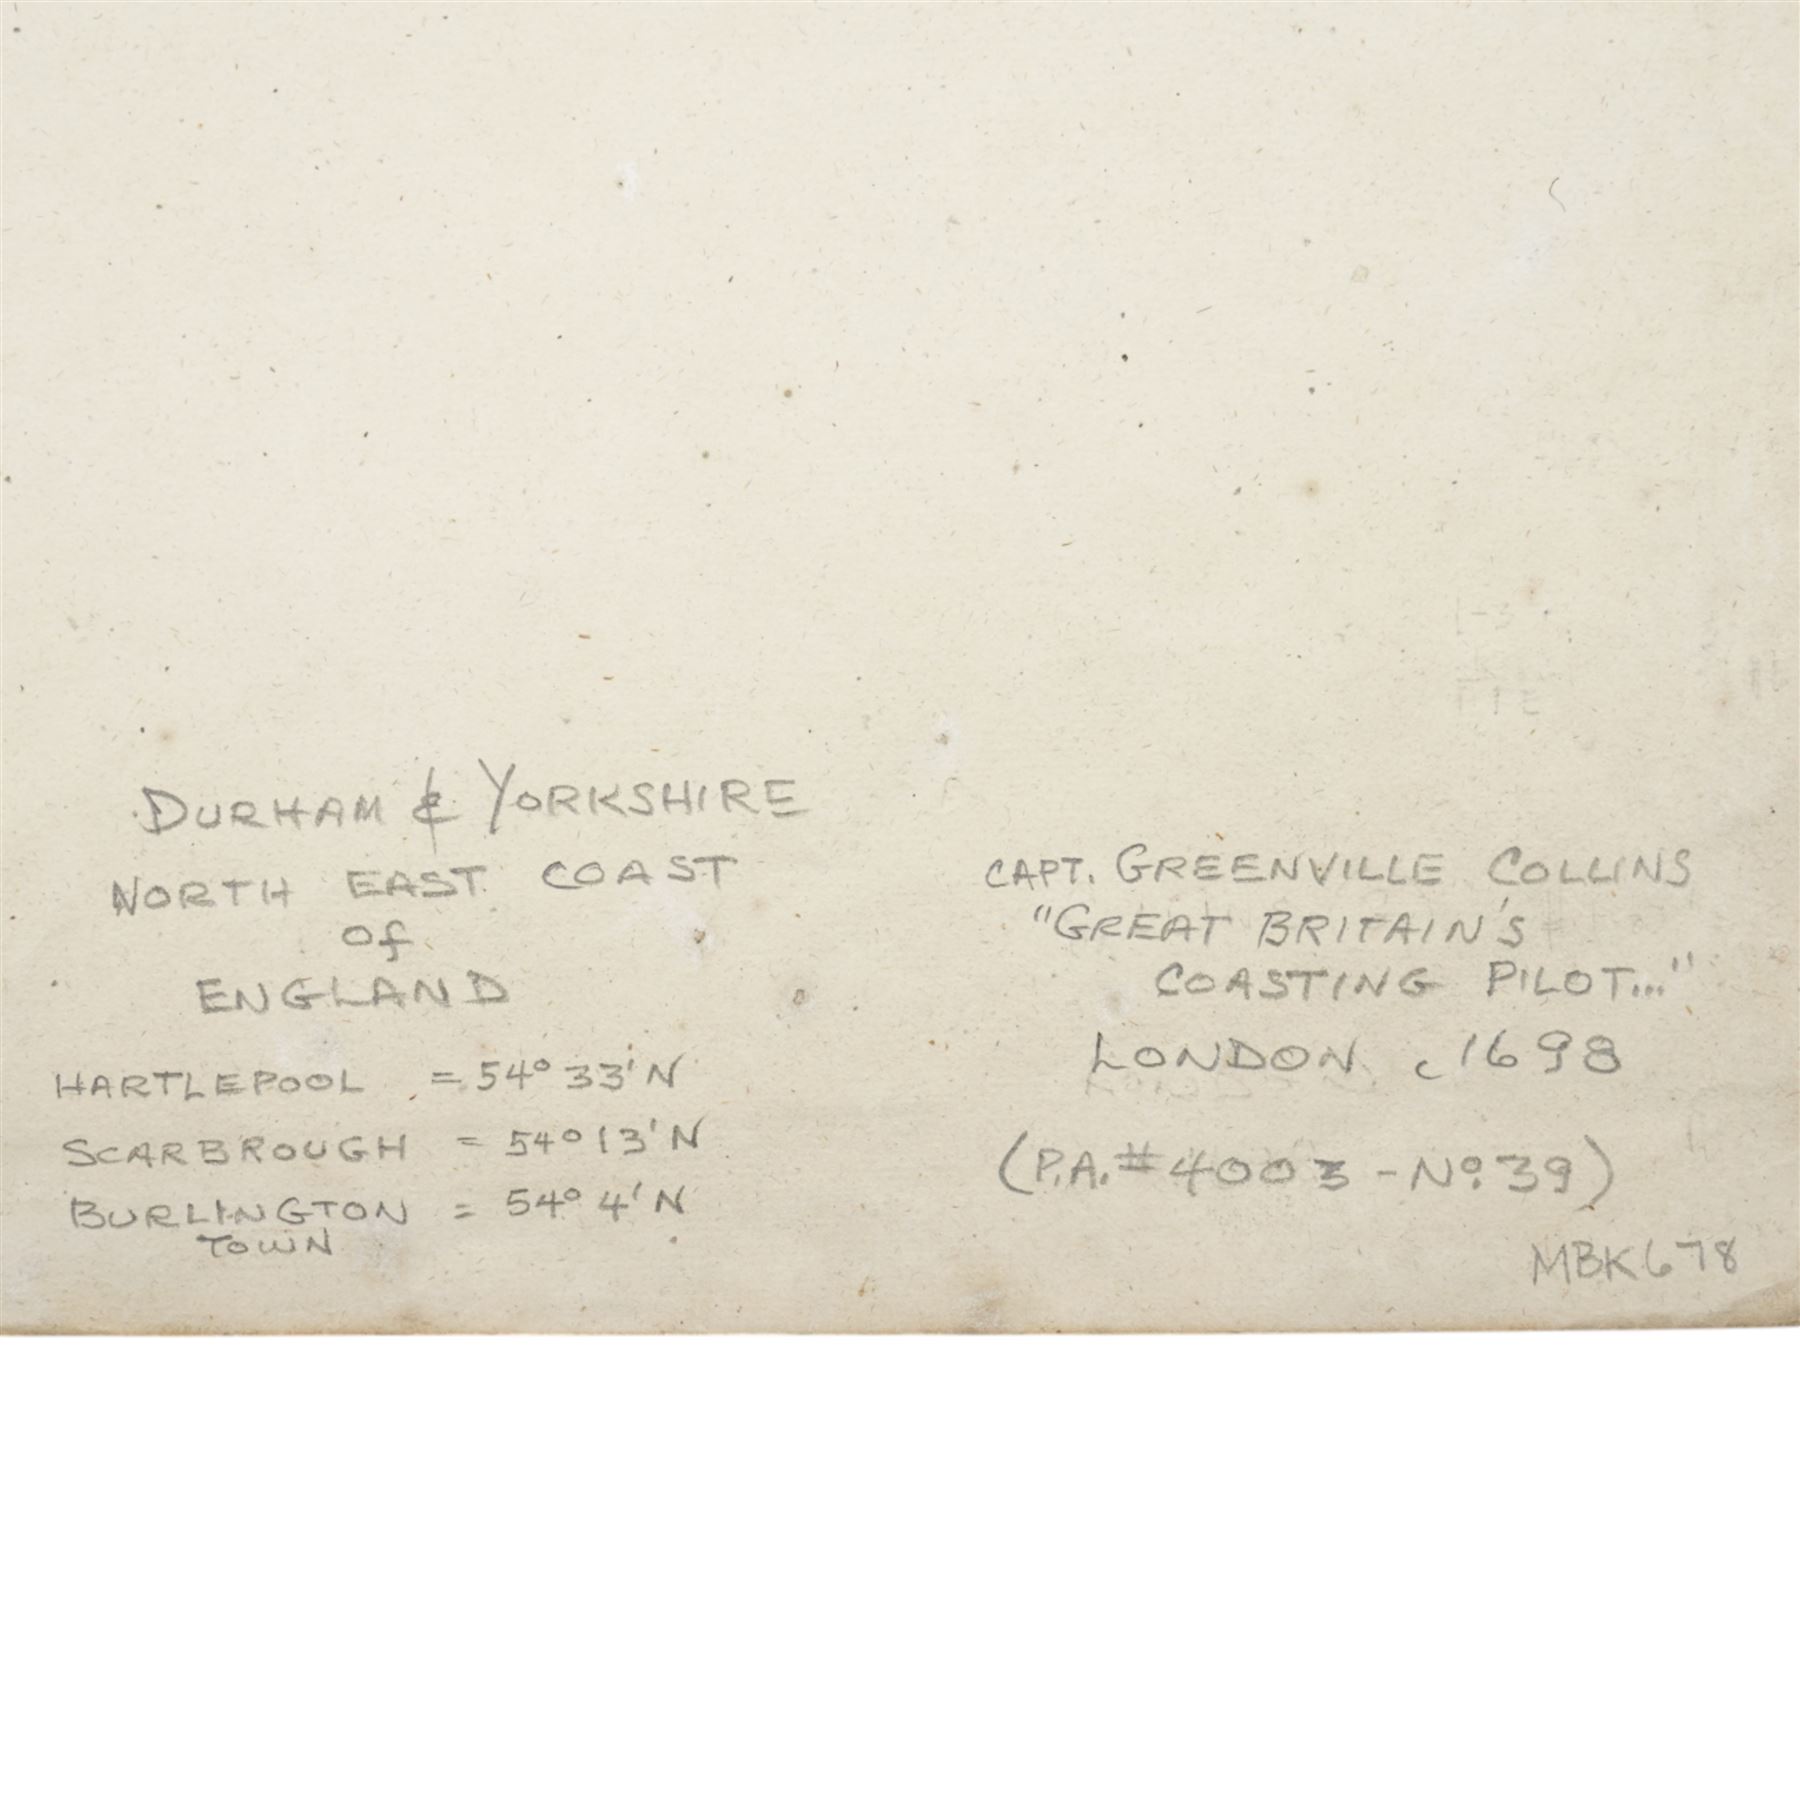 DURHAM & YORKSHIRE
NORTH EAST COAST
of
ENGLAND
HARTLEPOOL = 54° 33' N
SCARBROUGH = 54° 13' N
BURLINGTON = 54° 4' N
TOWN
CAPT. GREENVILLE COLLINS
"GREAT BRITAIN'S
COASTING PILOT..."
LONDON c1698
(P.A. # 4003 - No. 39)
MBK678